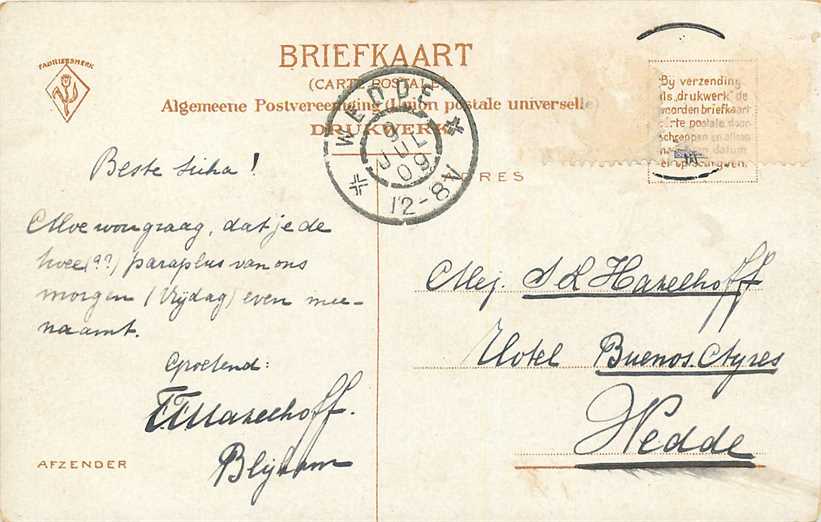 FABRIEKSMERK
BRIEFKAART
(CARTE POSTALE)
Algemeene Postvereeniging (Union postale universelle)
DRUKWERK
WEDDE
9 JUL 09
12-8N
By verzending
als „drukwerk" de
woorden briefkaart
carte postale door
schrappen en alleen
naam en datum
Beste
ADRES
Moe wou graag, dat je de
twee (??) paraplus van ons
morgen (Vrijdag) even mee-
naamt.
Groetend:
Hazelhoff.
Blijham
AFZENDER
Mej. Hazelhoff
Hotel Buenos-Ayres
Wedde